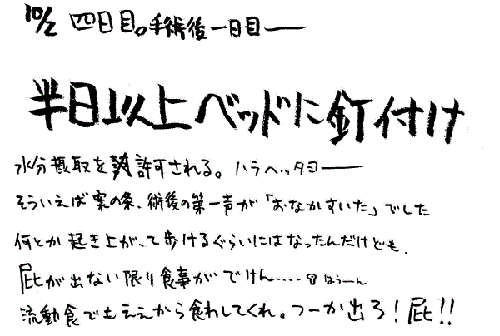 10/2 四日目。手術後一日目──
半日以上ベッドに釘付け
水分摂取を許可される。ハラヘッタヨ──
そういえば案の条、術後の第一声が「おなかすいた」でした
何とか起き上がって歩けるぐらいにはなったんだけども、
屁が出ない限り食事がでけん…… ぼほうーん
流動食でもええから食わしてくれ。つーか出ろ！屁！！